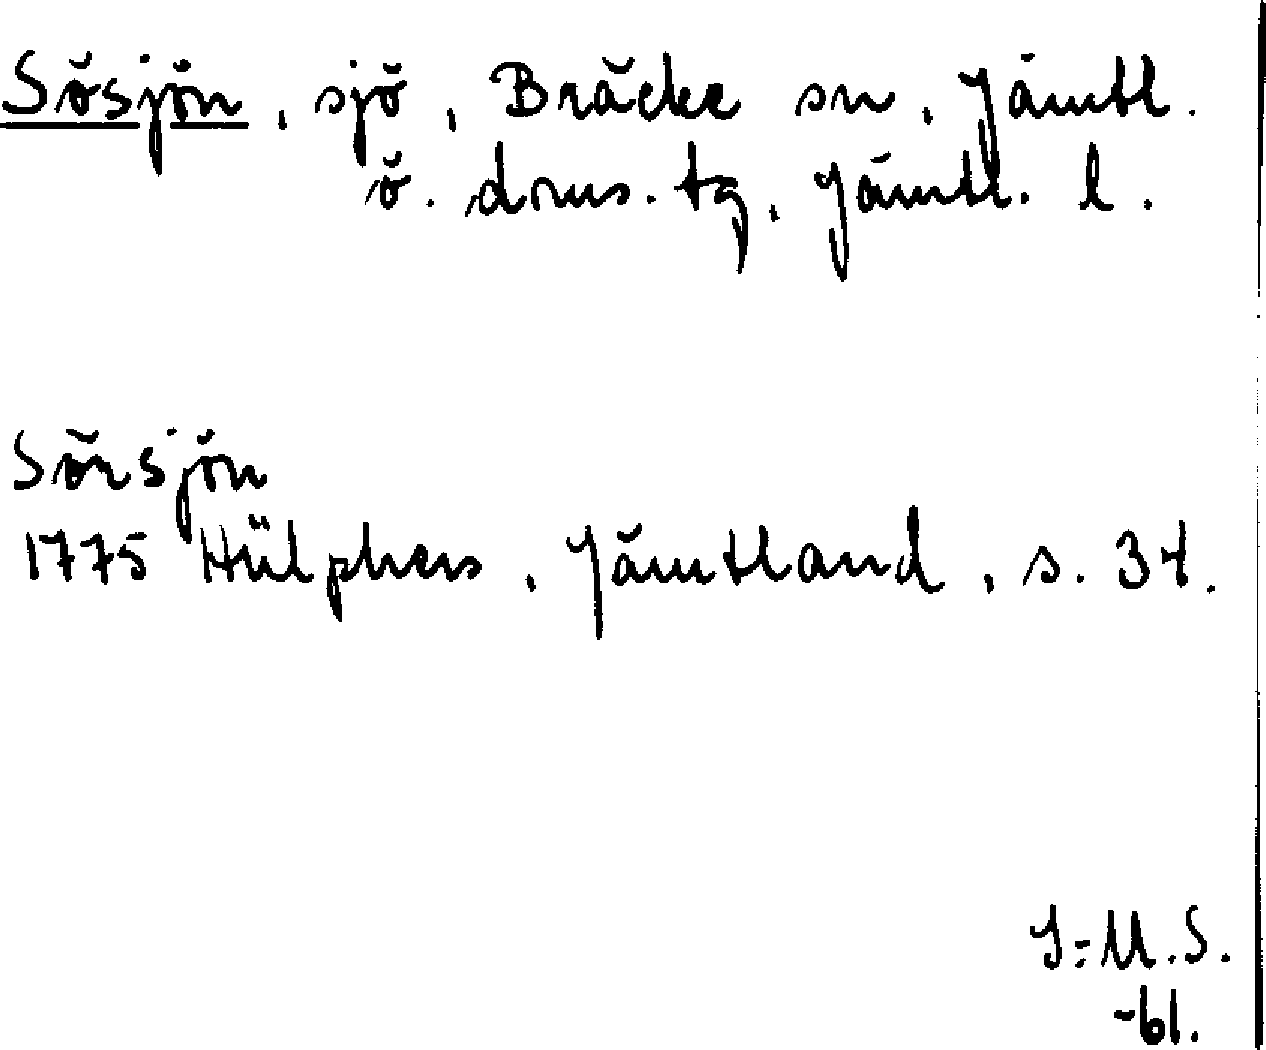 Sösjön, sjö, Bräcke sn, Jämtl.
ö. doms. tg, Jämtl. l.
Sörsjön
1775 Hülphers, Jämtland, s. 34.
I:M.S.
-61.